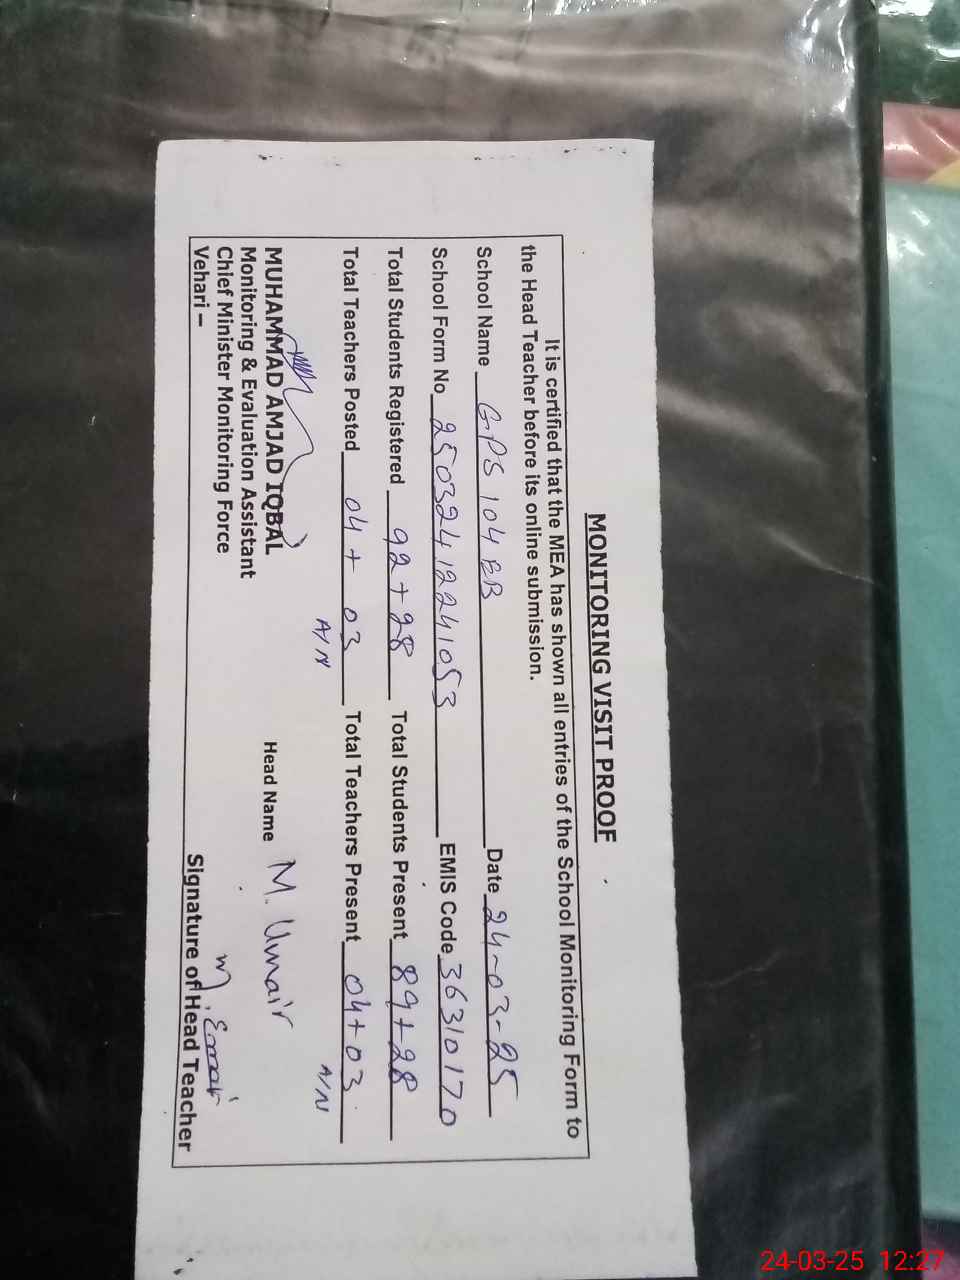 MONITORING VISIT PROOF
It is certified that the MEA has shown all entries of the School Monitoring Form to
the Head Teacher before its online submission.
School Name GPS 104 EB Date 24-03-25
School Form No 25032412241053 EMIS Code 36310170
Total Students Registered 92+28 Total Students Present 89+28
Total Teachers Posted 04+03 Total Teachers Present 04+03
A/N A/N
MUHAMMAD AMJAD IQBAL Head Name M. Umair
Monitoring & Evaluation Assistant
Chief Minister Monitoring Force
Vehari – Signature of Head Teacher
24-03-25 12:27